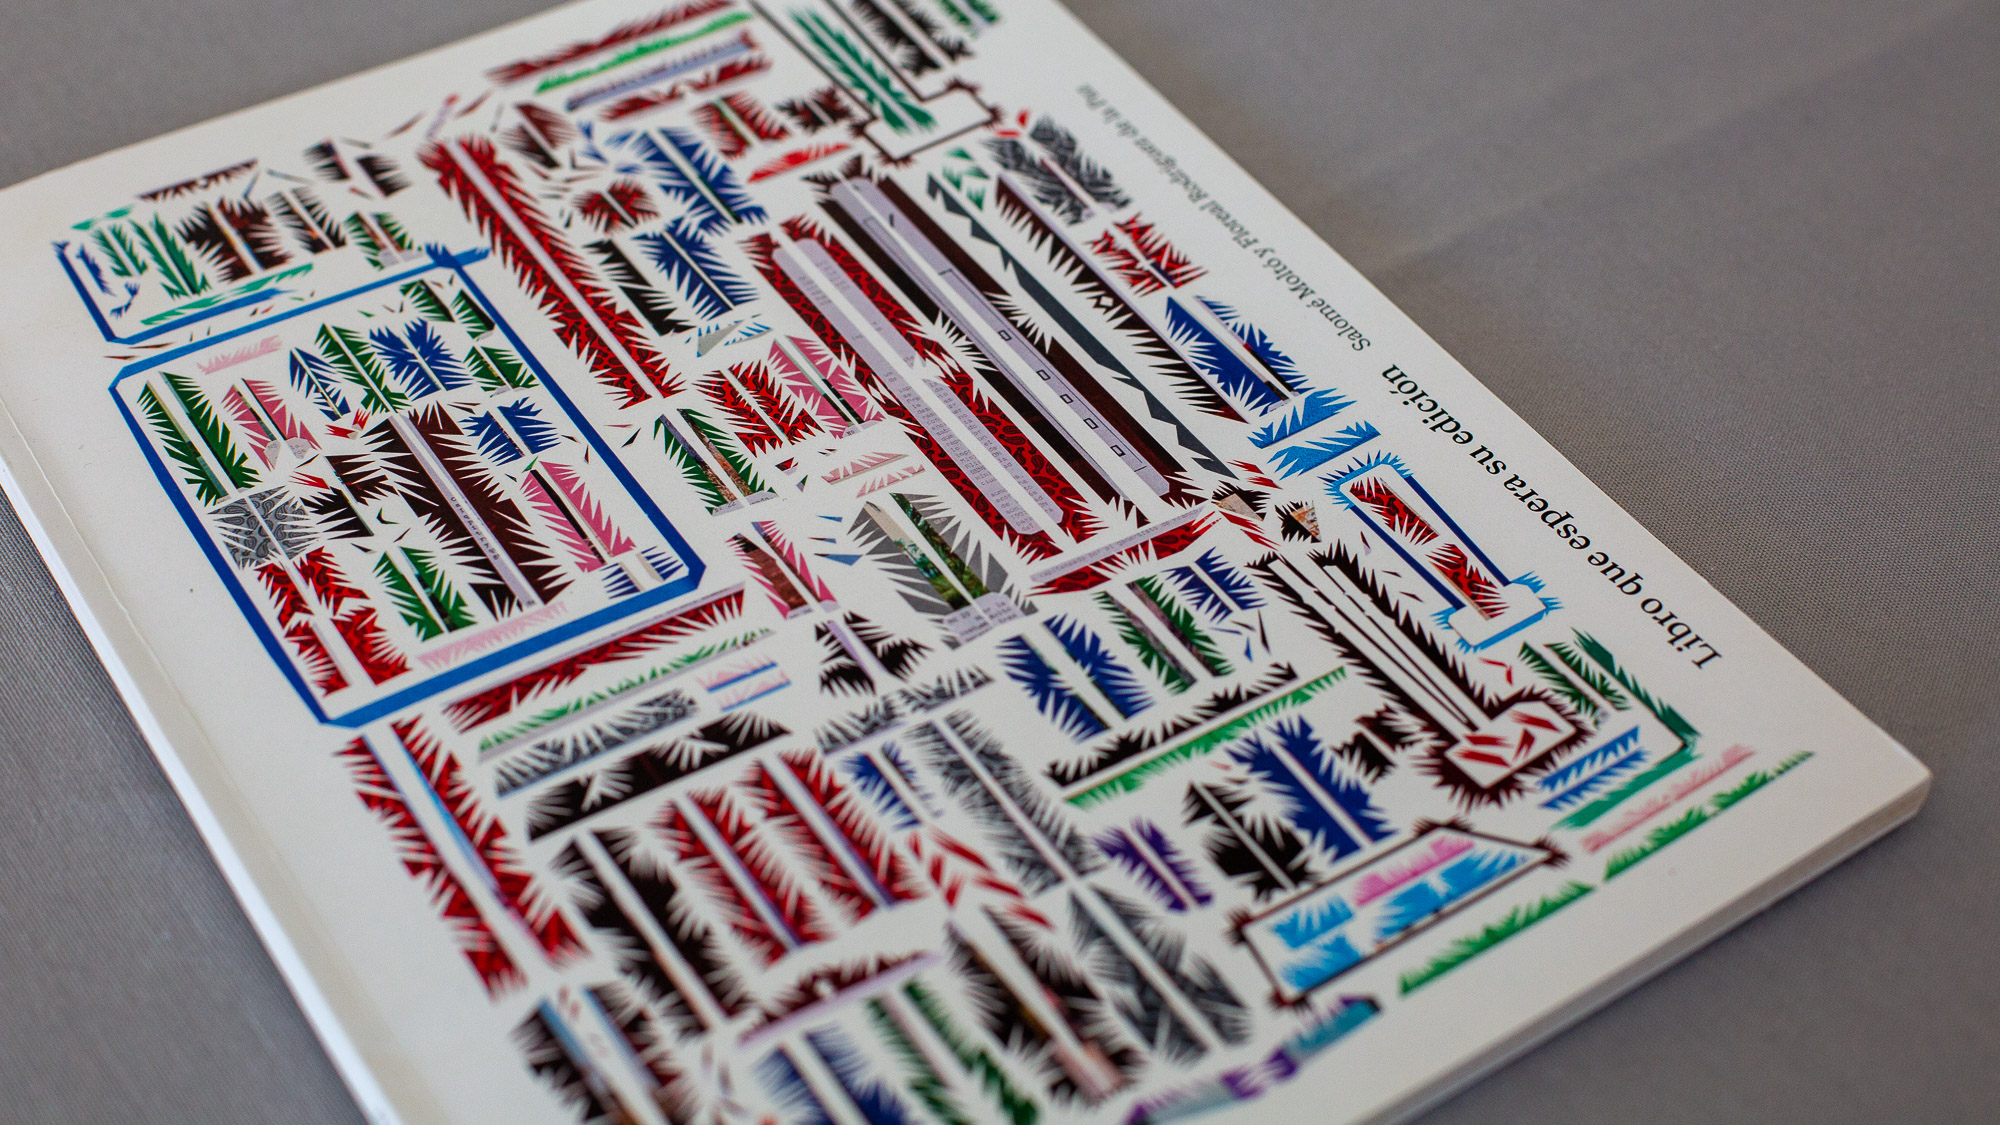 Libro que espera su edición
Salomé Moltó y Floreal Rodríguez de la Paz